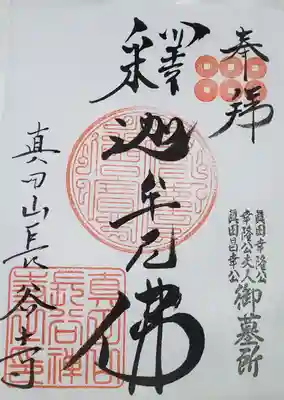 奉拝
眞田幸隆公
幸隆公夫人
眞田昌幸公
御墓所
釋迦牟尼佛
真田山長谷寺